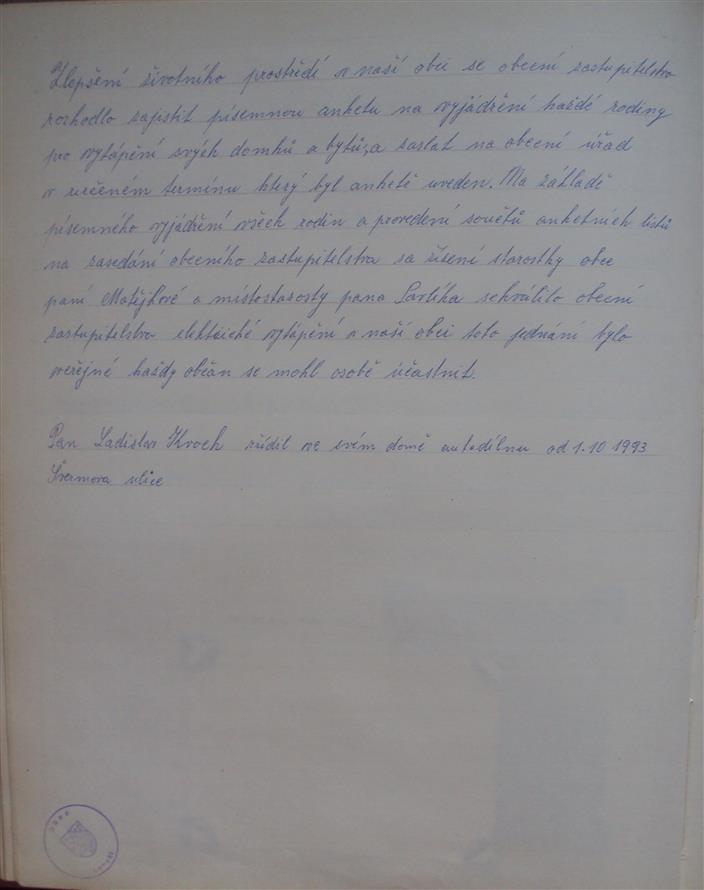 Zlepšení životního prostředí v naší obci se obecní zastupitelstvo
rozhodlo zajistit písemnou anketu na vyjádření každé rodiny
pro vytápění svých domků a bytů, a zaslat na obecní úřad
v určeném termínu který byl anketě uveden. Na základě
písemného vyjádření všech rodin a provedení součtů anketních listů
na zasedání obecního zastupitelstva za řízení starostky obce
paní Matějkové a místostarosty pana Pavlíka schválilo obecní
zastupitelstvo elektrické vytápění v naší obci toto jednání bylo
veřejné každy občan se mohl osobě účastnit.
Pan Ladislav Kroch zřídil ve svém domě autodílnu od 1.10 1993
Švermova ulice